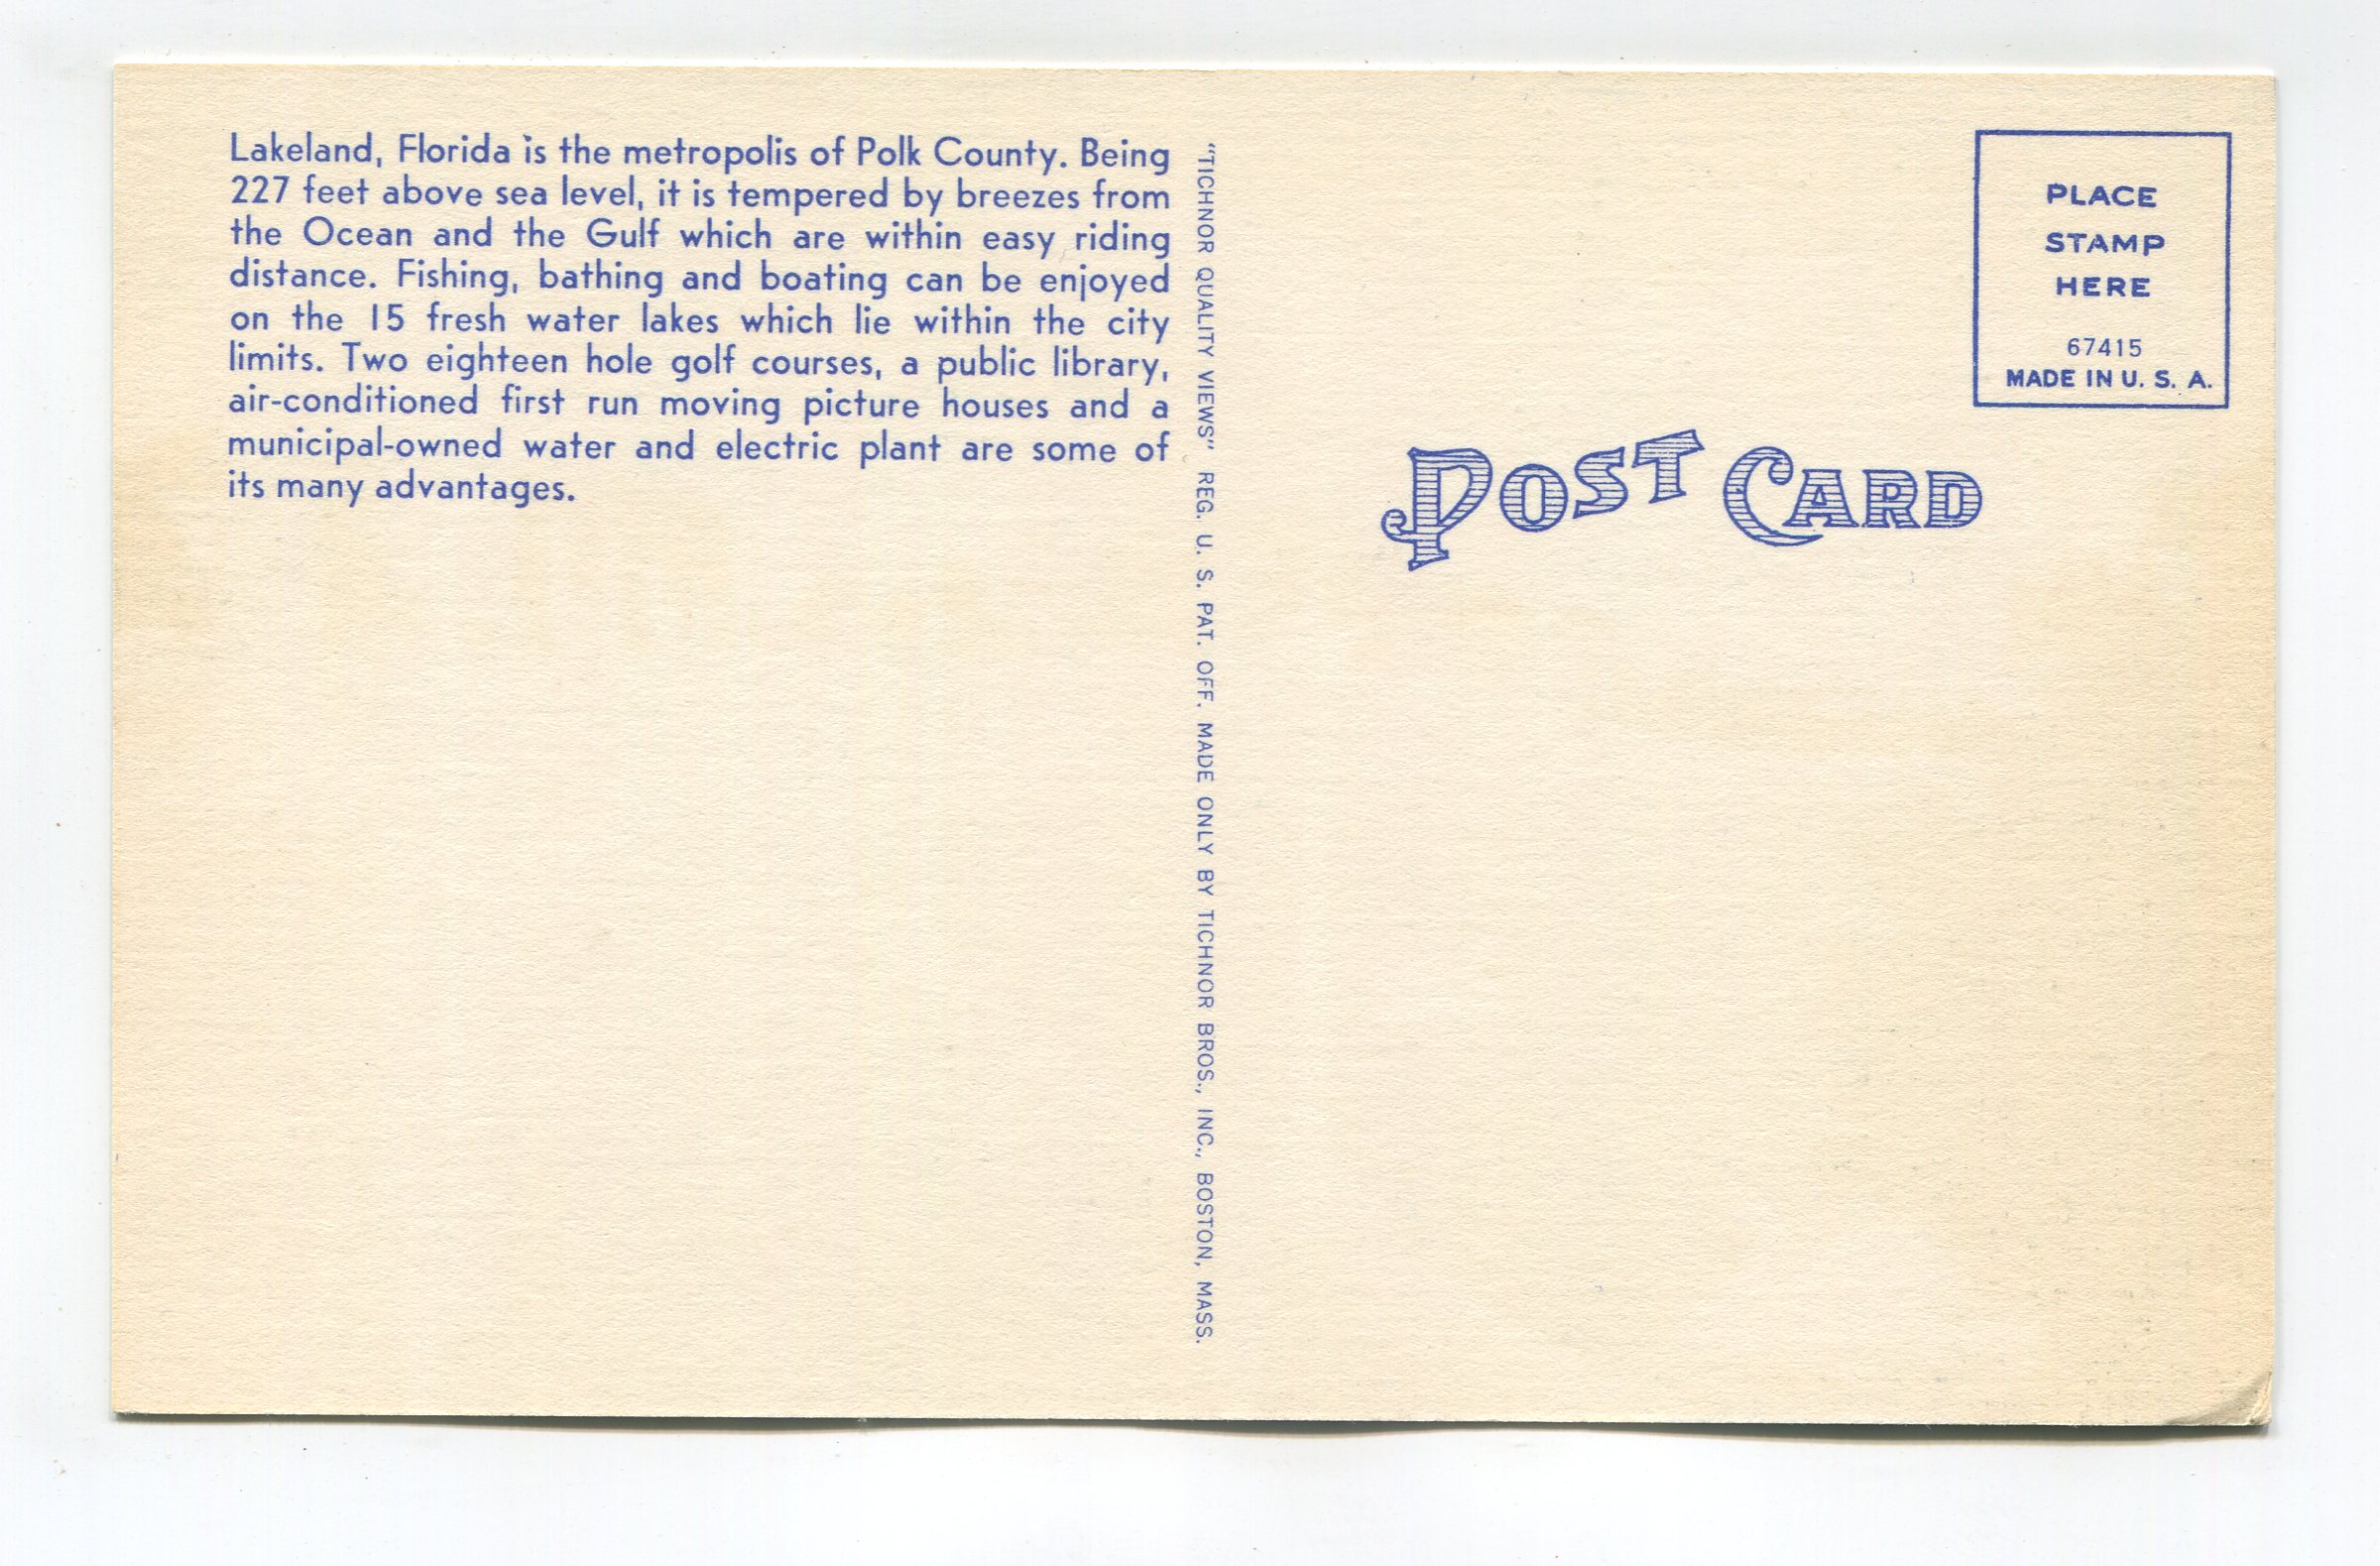 Lakeland, Florida is the metropolis of Polk County. Being
227 feet above sea level, it is tempered by breezes from
the Ocean and the Gulf which are within easy riding
distance. Fishing, bathing and boating can be enjoyed
on the 15 fresh water lakes which lie within the city
limits. Two eighteen hole golf courses, a public library,
air-conditioned first run moving picture houses and a
municipal-owned water and electric plant are some of
its many advantages.
"TICHNOR QUALITY VIEWS" REG. U. S. PAT. OFF. MADE ONLY BY TICHNOR BROS., INC., BOSTON, MASS.
PLACE
STAMP
HERE
67415
MADE IN U. S. A.
POST CARD